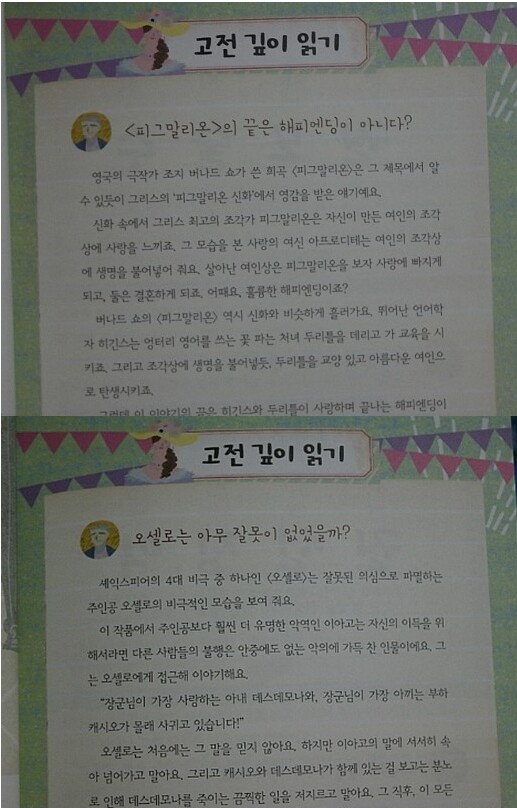 고전 깊이 읽기
<피그말리온>의 끝은 해피엔딩이 아니다?
영국의 극작가 조지 버나드 쇼가 쓴 희곡 <피그말리온>은 그 제목에서 알
수 있듯이 그리스의 '피그말리온 신화'에서 영감을 받은 얘기예요.
신화 속에서 그리스 최고의 조각가 피그말리온은 자신이 만든 여인의 조각
상에 사랑을 느끼죠. 그 모습을 본 사랑의 여신 아프로디테는 여인의 조각상
에 생명을 불어넣어 줘요. 살아난 여인상은 피그말리온을 보자 사랑에 빠지게
되고, 둘은 결혼하게 되죠. 어때요, 훌륭한 해피엔딩이죠?
버나드 쇼의 <피그말리온> 역시 신화와 비슷하게 흘러가요. 뛰어난 언어학
자 히긴스는 엉터리 영어를 쓰는 꽃 파는 처녀 두리틀을 데리고 가 교육을 시
키죠. 그리고 조각상에 생명을 불어넣듯, 두리틀을 교양 있고 아름다운 여인으
로 탄생시키죠.
그런데 이 이야기의 끝은 히긴스와 두리틀이 사랑하며 끝나는 해피엔딩이
고전 깊이 읽기
오셀로는 아무 잘못이 없었을까?
셰익스피어의 4대 비극 중 하나인 <오셀로>는 잘못된 의심으로 파멸하는
주인공 오셀로의 비극적인 모습을 보여 줘요.
이 작품에서 주인공보다 훨씬 더 유명한 악역인 이아고는 자신의 이득을 위
해서라면 다른 사람들의 불행은 안중에도 없는 악의에 가득 찬 인물이에요. 그
는 오셀로에게 접근해 이야기해요.
"장군님이 가장 사랑하는 아내 데스데모나와, 장군님이 가장 아끼는 부하
캐시오가 몰래 사귀고 있습니다!"
오셀로는 처음에는 그 말을 믿지 않아요. 하지만 이아고의 말에 서서히 속
아 넘어가고 말아요. 그리고 캐시오와 데스데모나가 함께 있는 걸 보고는 분노
로 인해 데스데모나를 죽이는 끔찍한 일을 저지르고 말아요. 그 직후, 이 모든